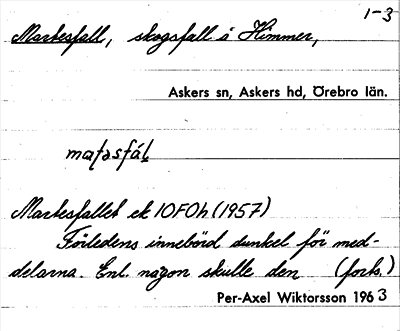 1-3
Markesfall, skogsfall å Himmer,
Askers sn, Askers hd, Örebro län.
maʈəsfáḷ
Markesfallet ek 10F0h (1957)
Förledens innebörd dunkel för med-
delarna. Enl. någon skulle den (forts.)
Per-Axel Wiktorsson 1963